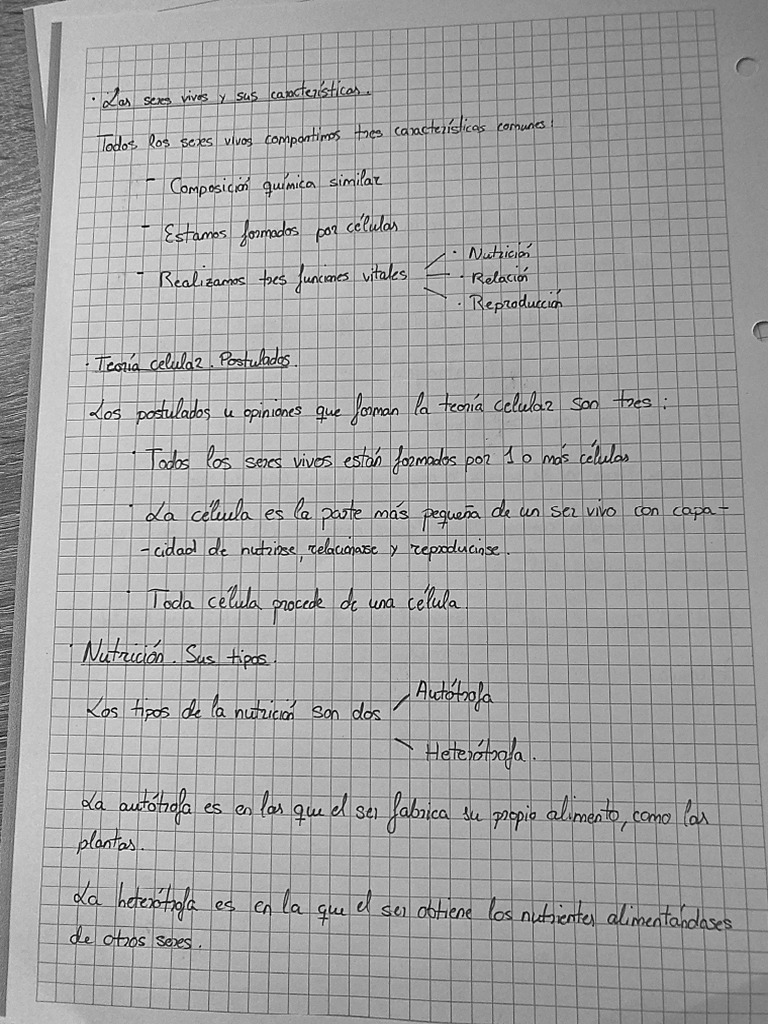 · Los seres vivos y sus características.
Todos los seres vivos compartimos tres características comunes:
- Composición química similar
- Estamos formados por células
- Realizamos tres funciones vitales
· Nutrición
· Relación
· Reproducción
· Teoría celular. Postulados.
Los postulados u opiniones que forman la teoría celular son tres:
· Todos los seres vivos están formados por 1 o más células
· La célula es la parte más pequeña de un ser vivo con capa-
-cidad de nutrirse, relacionarse y reproducirse.
· Toda célula procede de una célula.
· Nutrición. Sus tipos.
Los tipos de la nutrición son dos
Autótrofa
Heterótrofa.
La autótrofa es en las que el ser fabrica su propio alimento, como las
plantas.
La heterótrofa es en la que el ser obtiene los nutrientes alimentándoses
de otros seres.